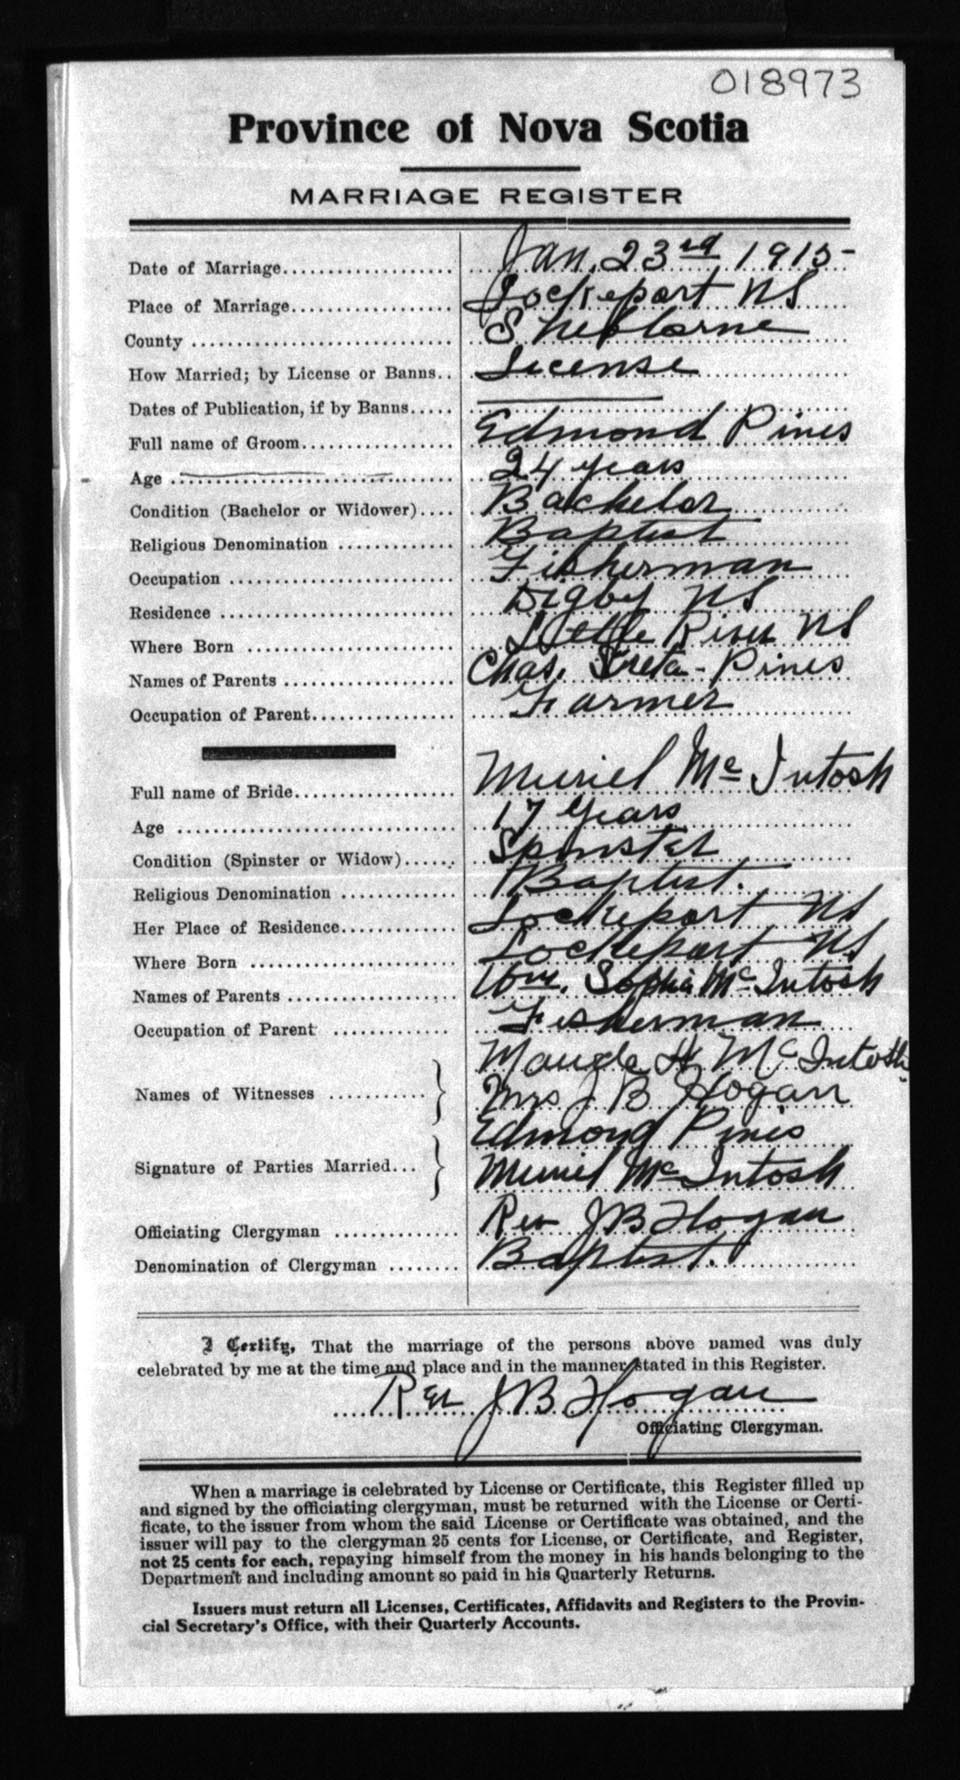 018973
Province of Nova Scotia
MARRIAGE REGISTER
Date of Marriage.................... Jan. 23rd 1915-
Place of Marriage.................. Lockeport NS
County ............................ Shelborne
How Married; by License or Banns.. License
Dates of Publication, if by Banns.....
Full name of Groom................. Edmond Pines
Age ............................... 24 years
Condition (Bachelor or Widower).... Bachelor
Religious Denomination ............ Baptist
Occupation ........................ Fisherman
Residence ......................... Digby NS
Where Born ........................ Little River NS
Names of Parents .................. Chas. Pines
Occupation of Parent............... Farmer
Full name of Bride................. Muriel Mc Intosh
Age ............................... 17 years
Condition (Spinster or Widow)...... Spinster
Religious Denomination ............ Baptist.
Her Place of Residence............. Lockeport NS
Where Born ........................ Lockeport NS
Names of Parents .................. Wm. Sophia Mc Intosh
Occupation of Parent .............. Fisherman
Maude H McIntosh
Names of Witnesses ........... } Mrs J B Hogan
Edmond Pines
Signature of Parties Married... } Muriel Mc Intosh
Officiating Clergyman ............. Rev J B Hogan
Denomination of Clergyman ........ Baptist.
I Certify, That the marriage of the persons above named was duly
celebrated by me at the time and place and in the manner stated in this Register.
Rev J B Hogan
Officiating Clergyman.
When a marriage is celebrated by License or Certificate, this Register filled up
and signed by the officiating clergyman, must be returned with the License or Certi-
ficate, to the issuer from whom the said License or Certificate was obtained, and the
issuer will pay to the clergyman 25 cents for License, or Certificate, and Register,
not 25 cents for each, repaying himself from the money in his hands belonging to the
Department and including amount so paid in his Quarterly Returns.
Issuers must return all Licenses, Certificates, Affidavits and Registers to the Provin-
cial Secretary's Office, with their Quarterly Accounts.